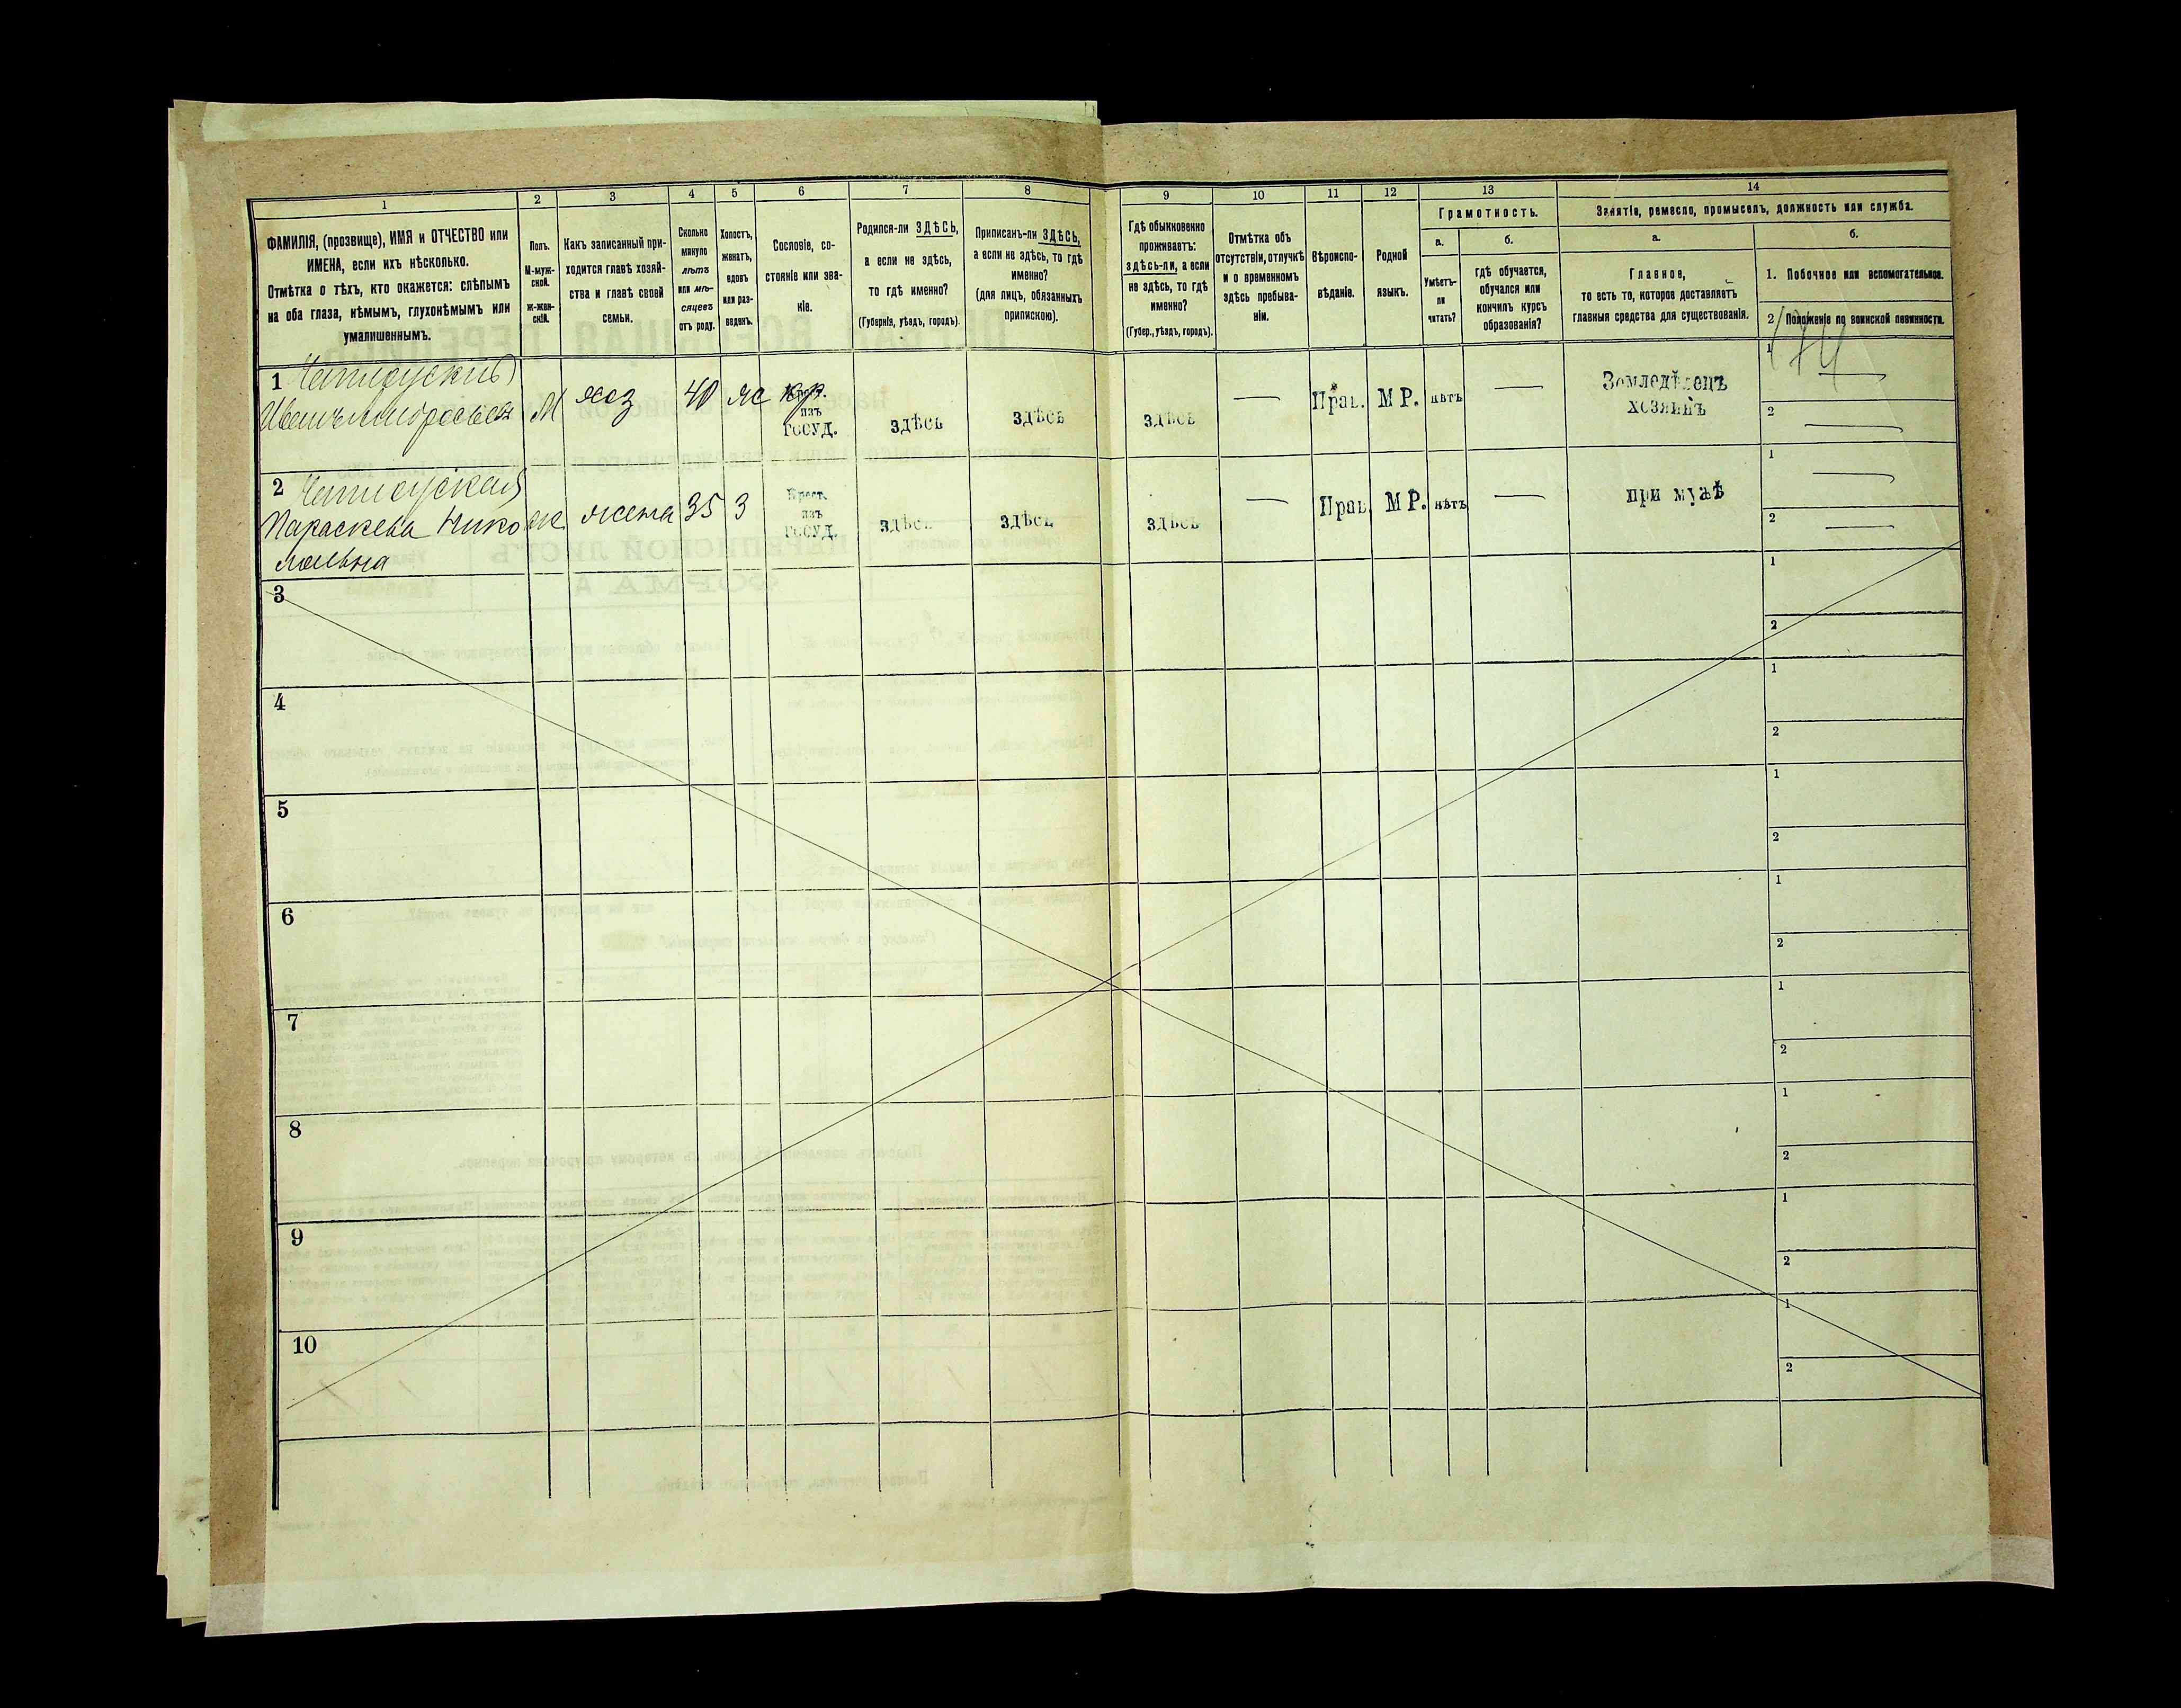 1 2 3 4 5 6 7 8 9 10 11 12 13 14
ФАМИЛІЯ, (прозвище), ИМЯ и ОТЧЕСТВО или
ИМЕНА, если ихъ нѣсколько.
Отмѣтка о тѣхъ, кто окажется: слѣпымъ
на оба глаза, нѣмымъ, глухонѣмымъ или
умалишеннымъ.
Полъ.
М-муж-
ской.
ж-жен-
скій.
Какъ записанный при-
ходится главѣ хозяй-
ства и главѣ своей
семьи.
Сколько
минуло
лѣтъ
или мѣ-
сяцевъ
отъ роду.
Холостъ,
женатъ,
вдовъ
или раз-
веденъ.
Сословіе, со-
стояніе или зва-
ніе.
Родился-ли ЗДѢСЬ,
а если не здѣсь,
то гдѣ именно?
(Губернія, уѣздъ, городъ).
Приписанъ-ли ЗДѢСЬ,
а если не здѣсь, то гдѣ
именно?
(для лицъ, обязанныхъ
припискою).
Гдѣ обыкновенно
проживаетъ:
здѣсь-ли, а если
не здѣсь, то гдѣ
именно?
(Губер., уѣздъ, городъ).
Отмѣтка объ
отсутствіи, отлучкѣ
и о временномъ
здѣсь пребыва-
ніи.
Вѣроиспо-
вѣданіе.
Родной
языкъ.
Грамотность.
а.
Умѣетъ-
ли
читать?
б.
гдѣ обучается,
обучался или
кончилъ курсъ
образованія?
Занятіе, ремесло, промыселъ, должность или служба.
а.
Главное,
то есть то, которое доставляетъ
главныя средства для существованія.
б.
1. Побочное или вспомогательное.
2 Положеніе по воинской повинности.
1
Иванъ М хоз 40 же кр. здѣсь здѣсь здѣсь — Прав. МР. нѣтъ — Земледѣлецъ 1 —
изъ
госуд. хозяинъ 2 —
2
Параскева Нико ж жена 35 З Крест. здѣсь здѣсь здѣсь — Прав. МР. нѣтъ — при мужѣ 1 —
изъ
госуд. 2 —
лаевна
3 1
2
4 1
2
5 1
2
6 1
2
7 1
2
8 1
2
9 1
2
10 1
2